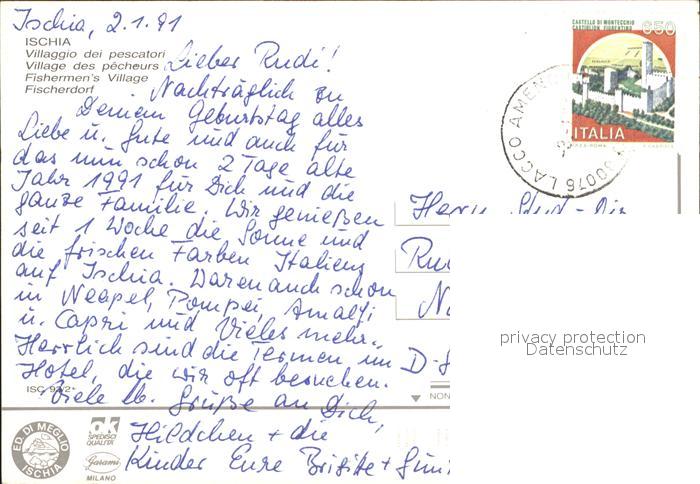 Ischia, 2.1.91
ISCHIA
Villaggio dei pescatori
Village des pêcheurs
Fishermen's Village
Fischerdorf
Lieber Rudi!
Nachträglich zu
Deinem Geburtstag alles
Liebe u. Gute und auch für
das nun schon 2 Tage alte
Jahr 1991 für Dich und die
ganze Familie. Wir genießen
seit 1 Woche die Sonne und
die frischen Farben Italiens
auf Ischia. Waren auch schon
in Neapel, Pompei, Amalfi
u. Capri und Vieles mehr.
Herrlich sind die Termen im
Hotel, die wir oft besuchen.
Viele lb. Grüße an Dich,
Hildchen + die
Kinder Eure Brigitte + Gün
ISC 92/2*
ED. DI MEGLIO
ISCHIA
ok
SPEDISCI
QUALITA'
Garami
MILANO
CASTELLO DI MONTECCHIO
CASTIGLION FIORENTINO
650
ITALIA
80076 LACCO AMENO
Herrn Stud-Dir
Rud
N
D-8
NON
privacy protection
Datenschutz